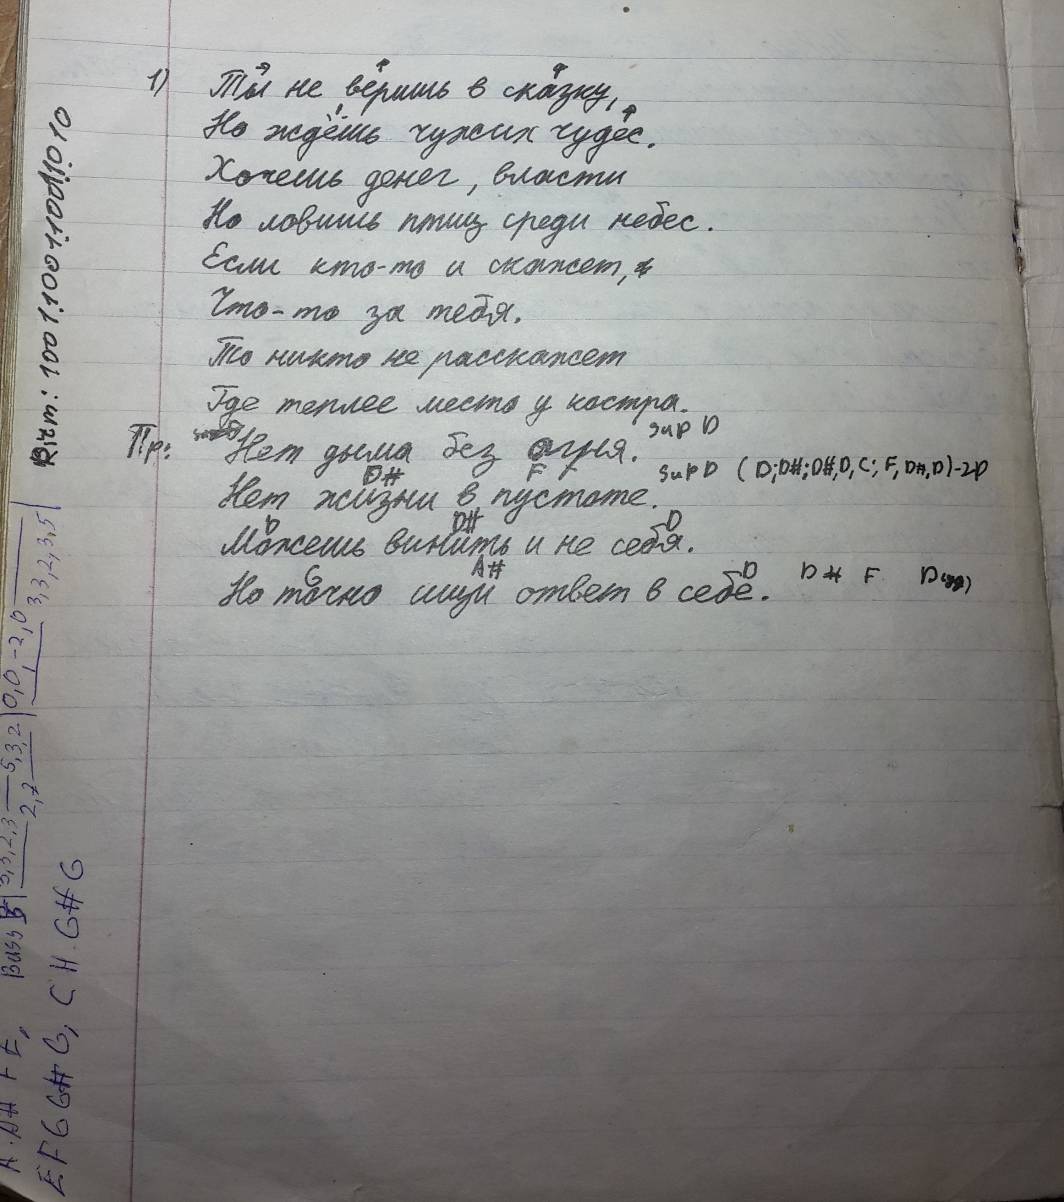 1) Ты не веришь в сказку,
Но ждёшь чужих чудес.
Хочешь денег, власти
Но ловишь птиц среди небес.
Если кто-то и скажет,
Что-то за тебя.
То никто не расскажет
Где теплее место у костра.
sup D
Пр: Нет дыма без огня.
D# F sup D (D;D#;D#,D,C;F,D#,D)-2D
Нет жизни в пустоте.
D D# D
Можешь винить и не себя.
C A# D D# F
Но точно ищи ответ в себе.
Ритм: 1001.1001.1001.1010
Bass
3,3,2,3 5,3,2 0,0,-2,0
3,3,2,3,5
A. A# F E,
E F G G# G, C H. G# G